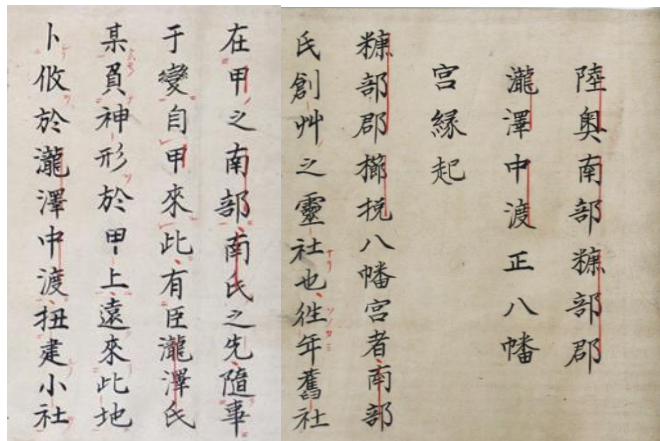 陸奥南部糠部郡
瀧澤中渡正八幡
宮縁起
糠部郡櫛挽八幡宮者南部
氏創艸之靈社也徃年舊社
在甲之南部南氏之先隨事
于變自甲來此有臣瀧澤氏
某負神形於甲上遠來此地
卜攸於瀧澤中渡扭建小社